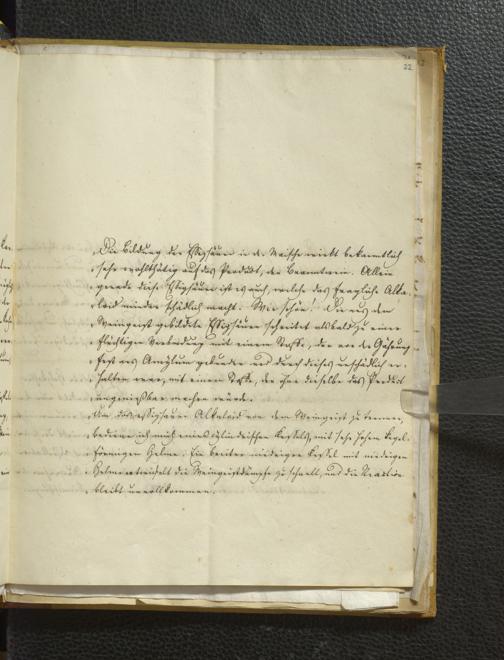 22
Die Bildung der Essigsäure in der Maische wirkt bekanntlich
sehr wohlthätig auf das Produkt, den Branntwein. Allein
gerade diese Essigsäure ist es auch, welche das fragliche Alka-
loid minder schädlich macht. Wie schön! Die aus dem
Weingeist gebildete Essigsäure schreitet alsbald zu einer
flüchtigen Verbindung mit einem Stoffe, der vor der Gährung
fest ans Amylum gebunden und durch dieses unschädlich er-
halten war, mit einem Stoffe, der ohne dieselbe das Produkt
ungenießbar machen würde.
Um das essigsaure Alkaloid von dem Weingeist zu trennen,
bediene ich mich eines cylindrischen Kessels, mit sehr hohem kegel-
förmigen Helme. Ein breiter niedriger Kessel mit niedrigem
Helme entwickelt die Weingeistdämpfe zu schnell, und die Reaction
bleibt unvollkommen.